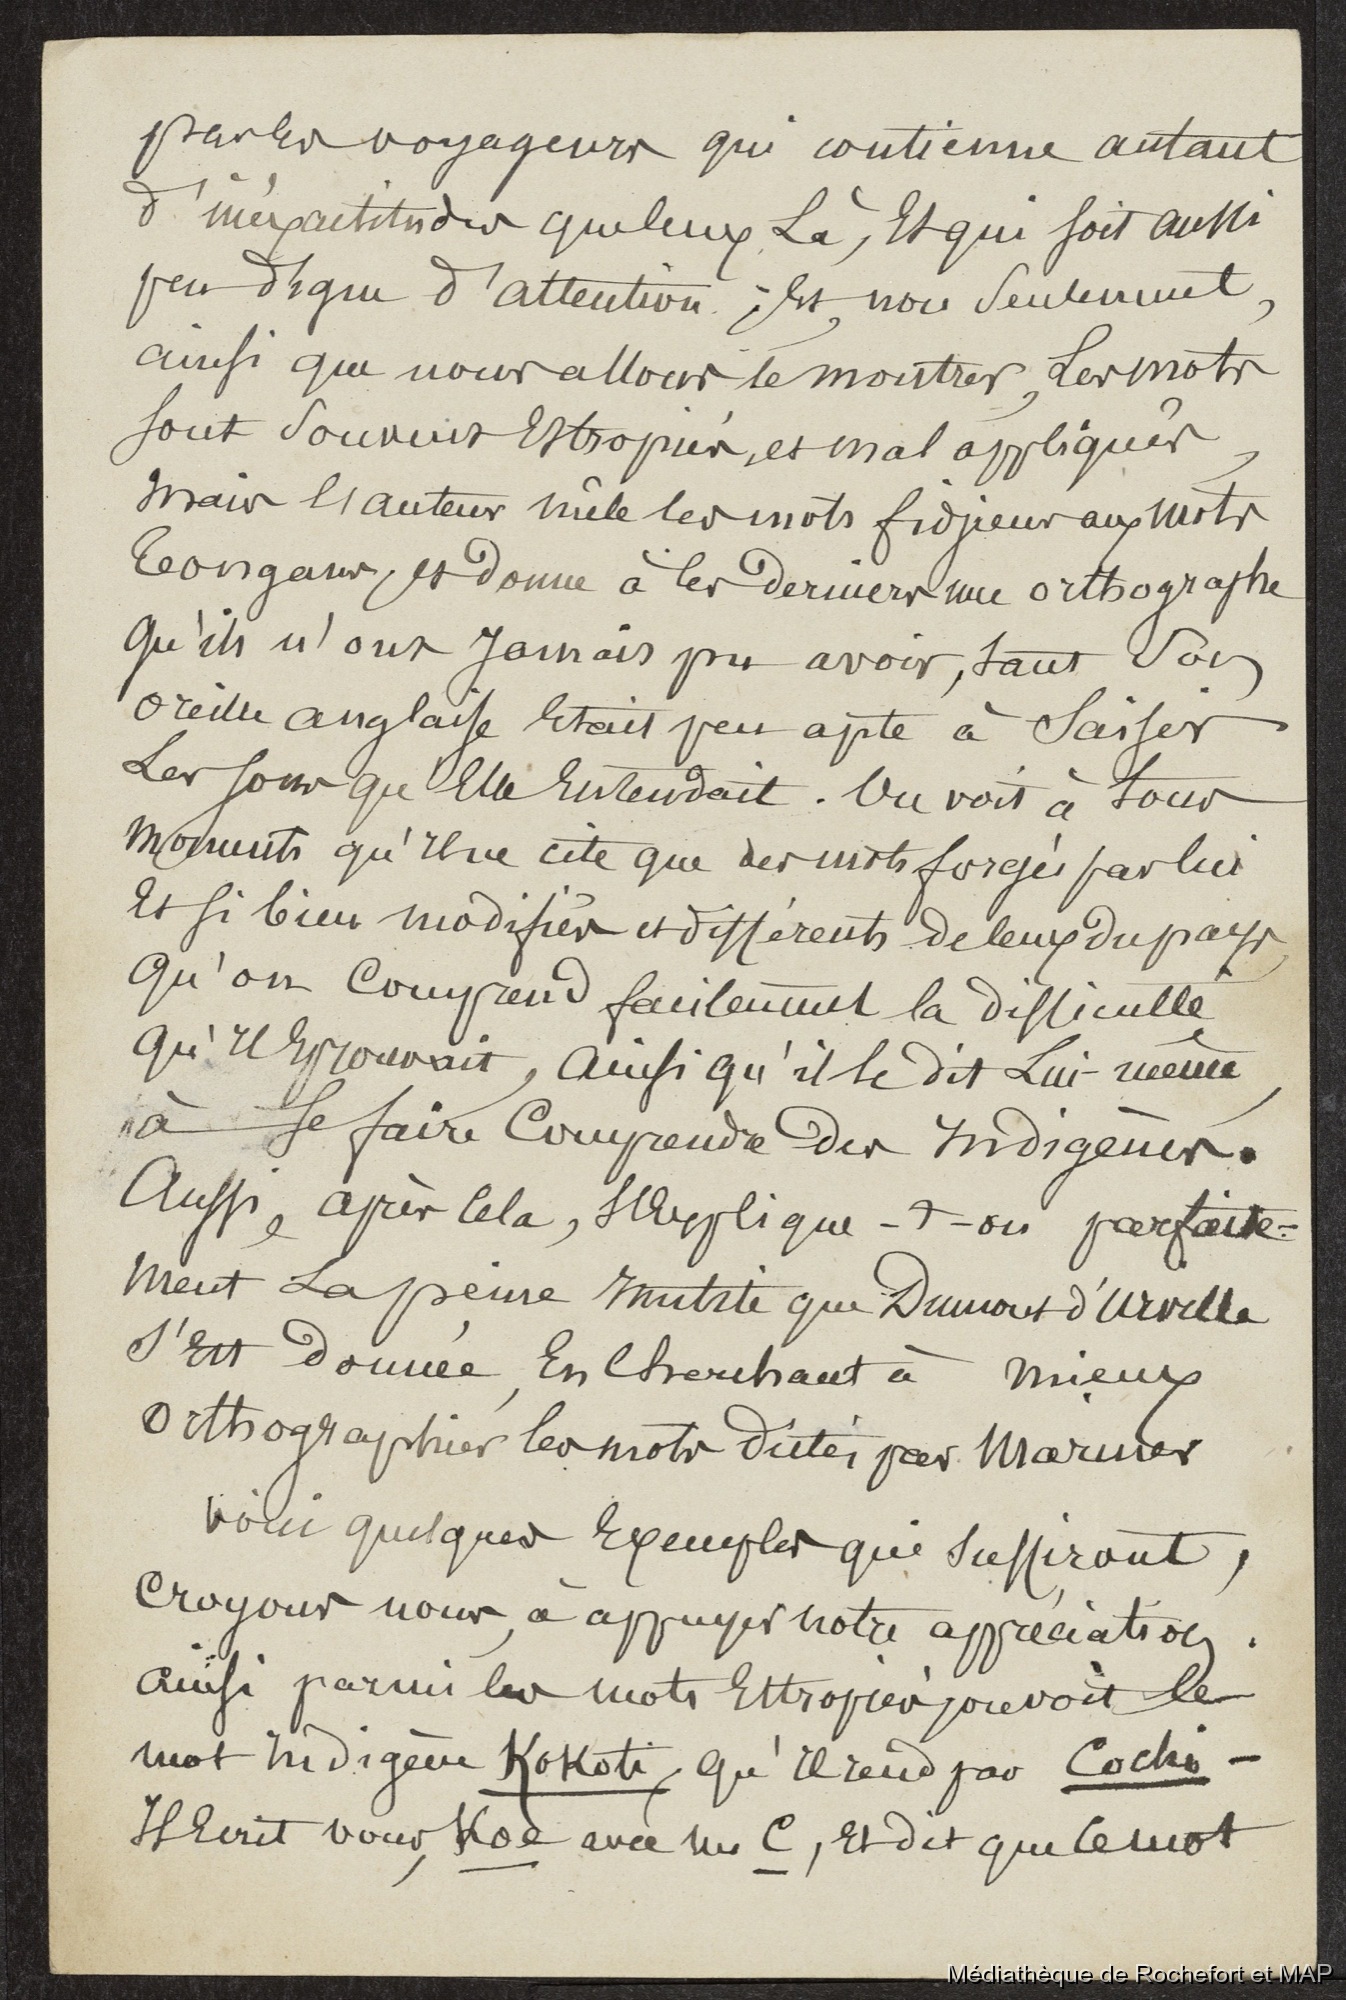 par les voyageurs qui contienne autant
d'inéxactitudes que ceux là, Et qui soit aussi
peu digne d'attention ; Et, non seulement,
ainsi que nous allons le montrer, Les mots
sont souvent Estropiés, et mal appliqués,
mais l'auteur mêle les mots fidjiens aux mots
Tongans, et donne à ces derniers une orthographe
Qu'ils n'ont Jamais pu avoir, tant son
oreille anglaise Etait peu apte à Saisir
Les sons qu'Elle Entendait. On voit à tous
moments qu'il ne cite que des mots forgés par lui
Et si bien modifiés et différents de ceux du pays,
Qu'on Comprend facilement la difficulté
Qu'Il Eprouvait, Ainsi qu'il le dit Lui-même,
à se faire Comprendre des Indigènes.
Aussi, après Cela, s'Explique-t-on parfaite-
ment La peine Inutile que Dumont d'Urville
s'Est donnée, En Cherchant à mieux
Orthographier les mots dictés par Mariner
Voici quelques Exemples qui suffiront,
Croyons nous, à appuyer notre appréciation.
Ainsi parmi les mots Estropiés on voit le
mot indigène Kokoti, Qu'Il rend par Cochi -
Il Ecrit vous, Koe avec un C, Et dit que le mot
Médiathèque de Rochefort et MAP